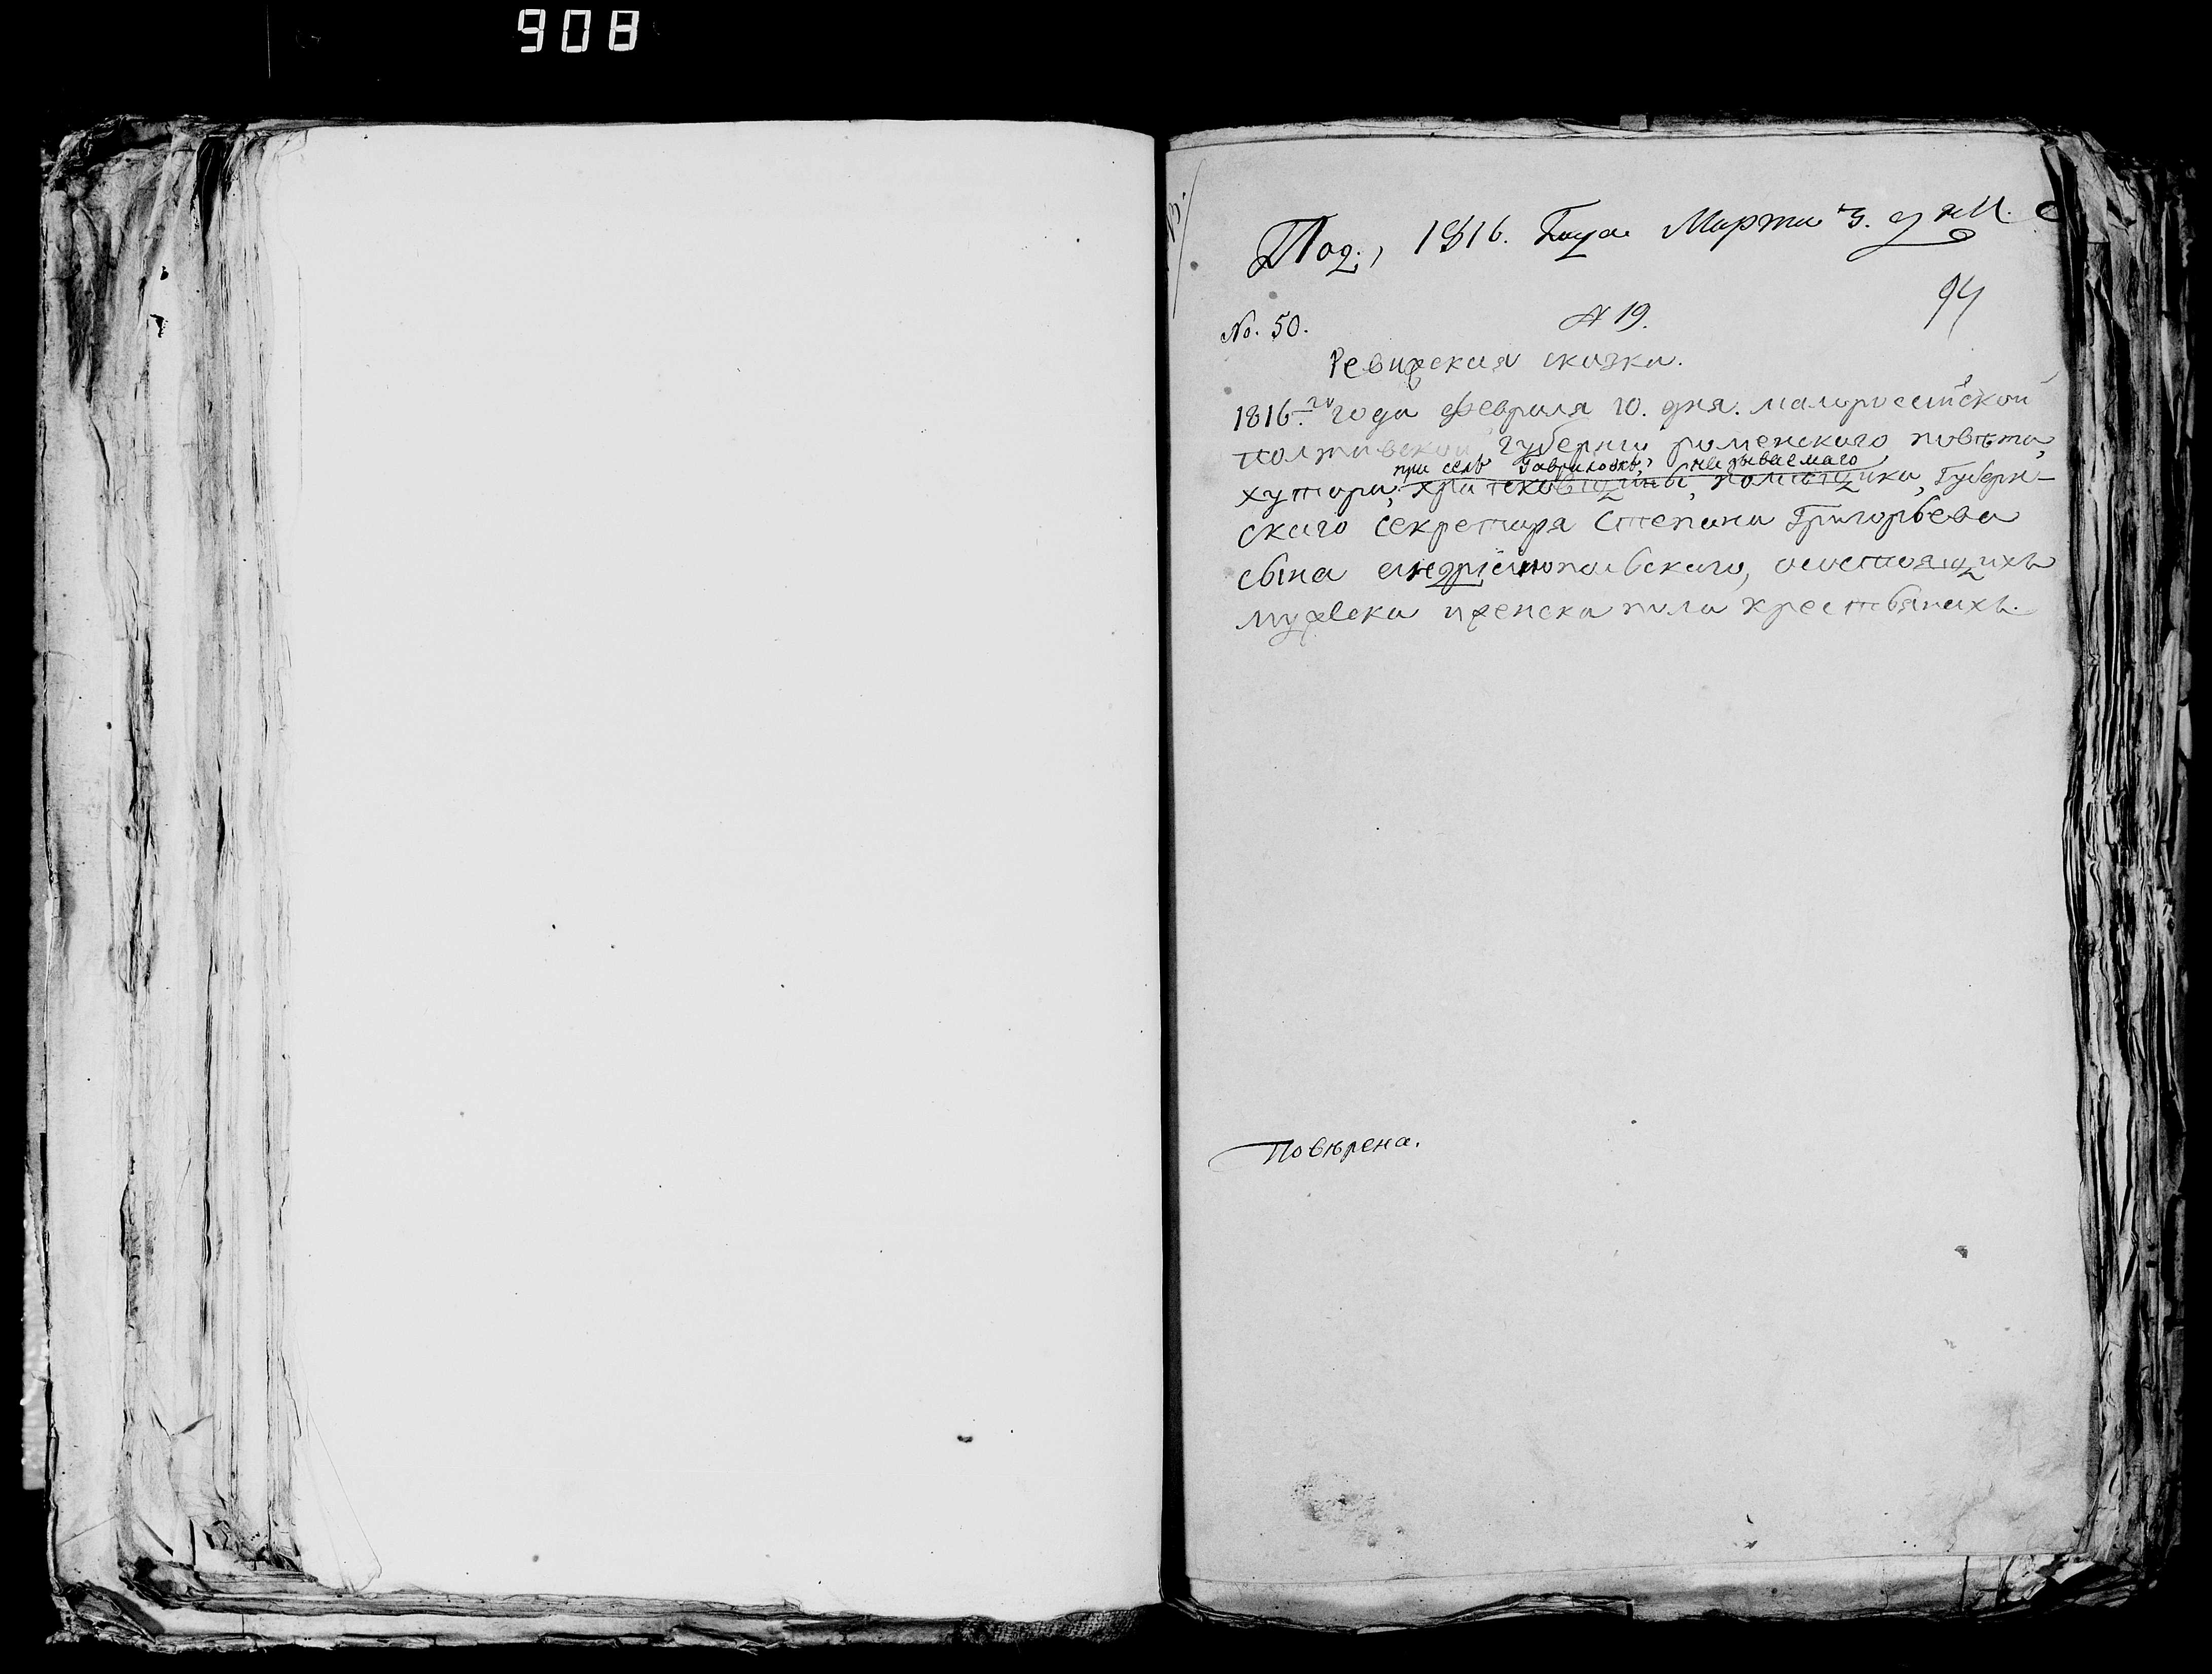 908
Под., 1816. Года Марта 3. дня.
No. 50.
N 19.
94
Ревижская сказка.
1816.го года февраля 10. дня. малороссійской
полтавской губерніи роменского повѣта,
при селѣ Гавриловкѣ, называемаго
хутора, помѣщика, Губерн-
ского секретаря Степана Григорьева
сына андріяпольскаго, осостоящихъ
мужеска иженска пола крестьянахъ.
Повѣрена.